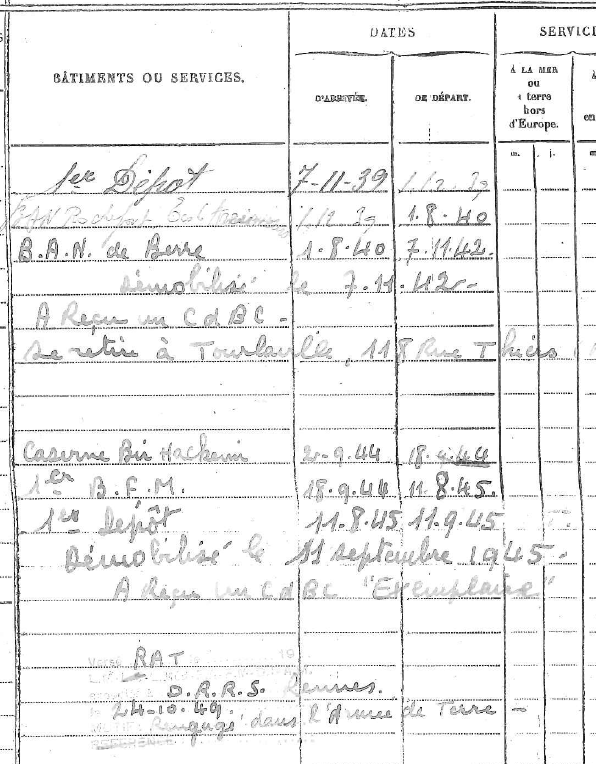 DATES
SERVICE
BÂTIMENTS OU SERVICES.
D'ARRIVÉE.
DE DÉPART.
À LA MER
ou
à terre
hors
d'Europe.
m. j.
1er Dépôt 7-11-39 1.12.39
BAN Rochefort 1.12.39 1.8.40
B.A.N. de Berre 1.8.40 7.11.42.
démobilisé le 7.11.42-
A Reçu un CdBC -
Se retire à Tourlaville, 118 Rue Thiers
Caserne Bir Hacheim 2-9.44 18.9.44
1er B.F.M. 18.9.44 11.8.45.
1er Dépôt 11.8.45 11.9.45
Démobilisé le 11 septembre 1945-
A Reçu un CdBC "Exemplaire"
RAT
D.A.R.S. Rennes.
le 24-10.49.
Rengagé dans l'Armée de Terre -
RÉFÉRENCE